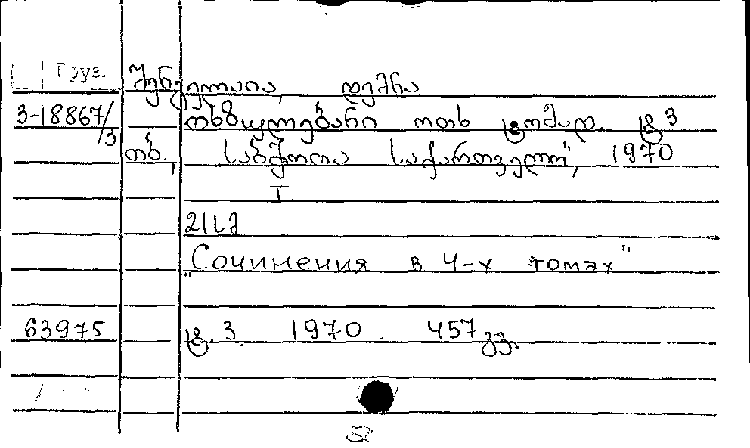 Груз. შენგელაია, დემნა
3-18867/3 თხზულებანი ოთხ ტომად. ტ. 3
თბ., „საბჭოთა საქართველო", 1970
I
21 სმ
"Сочинения в 4-х томах"
63975 ტ. 3. 1970. 457 გვ.